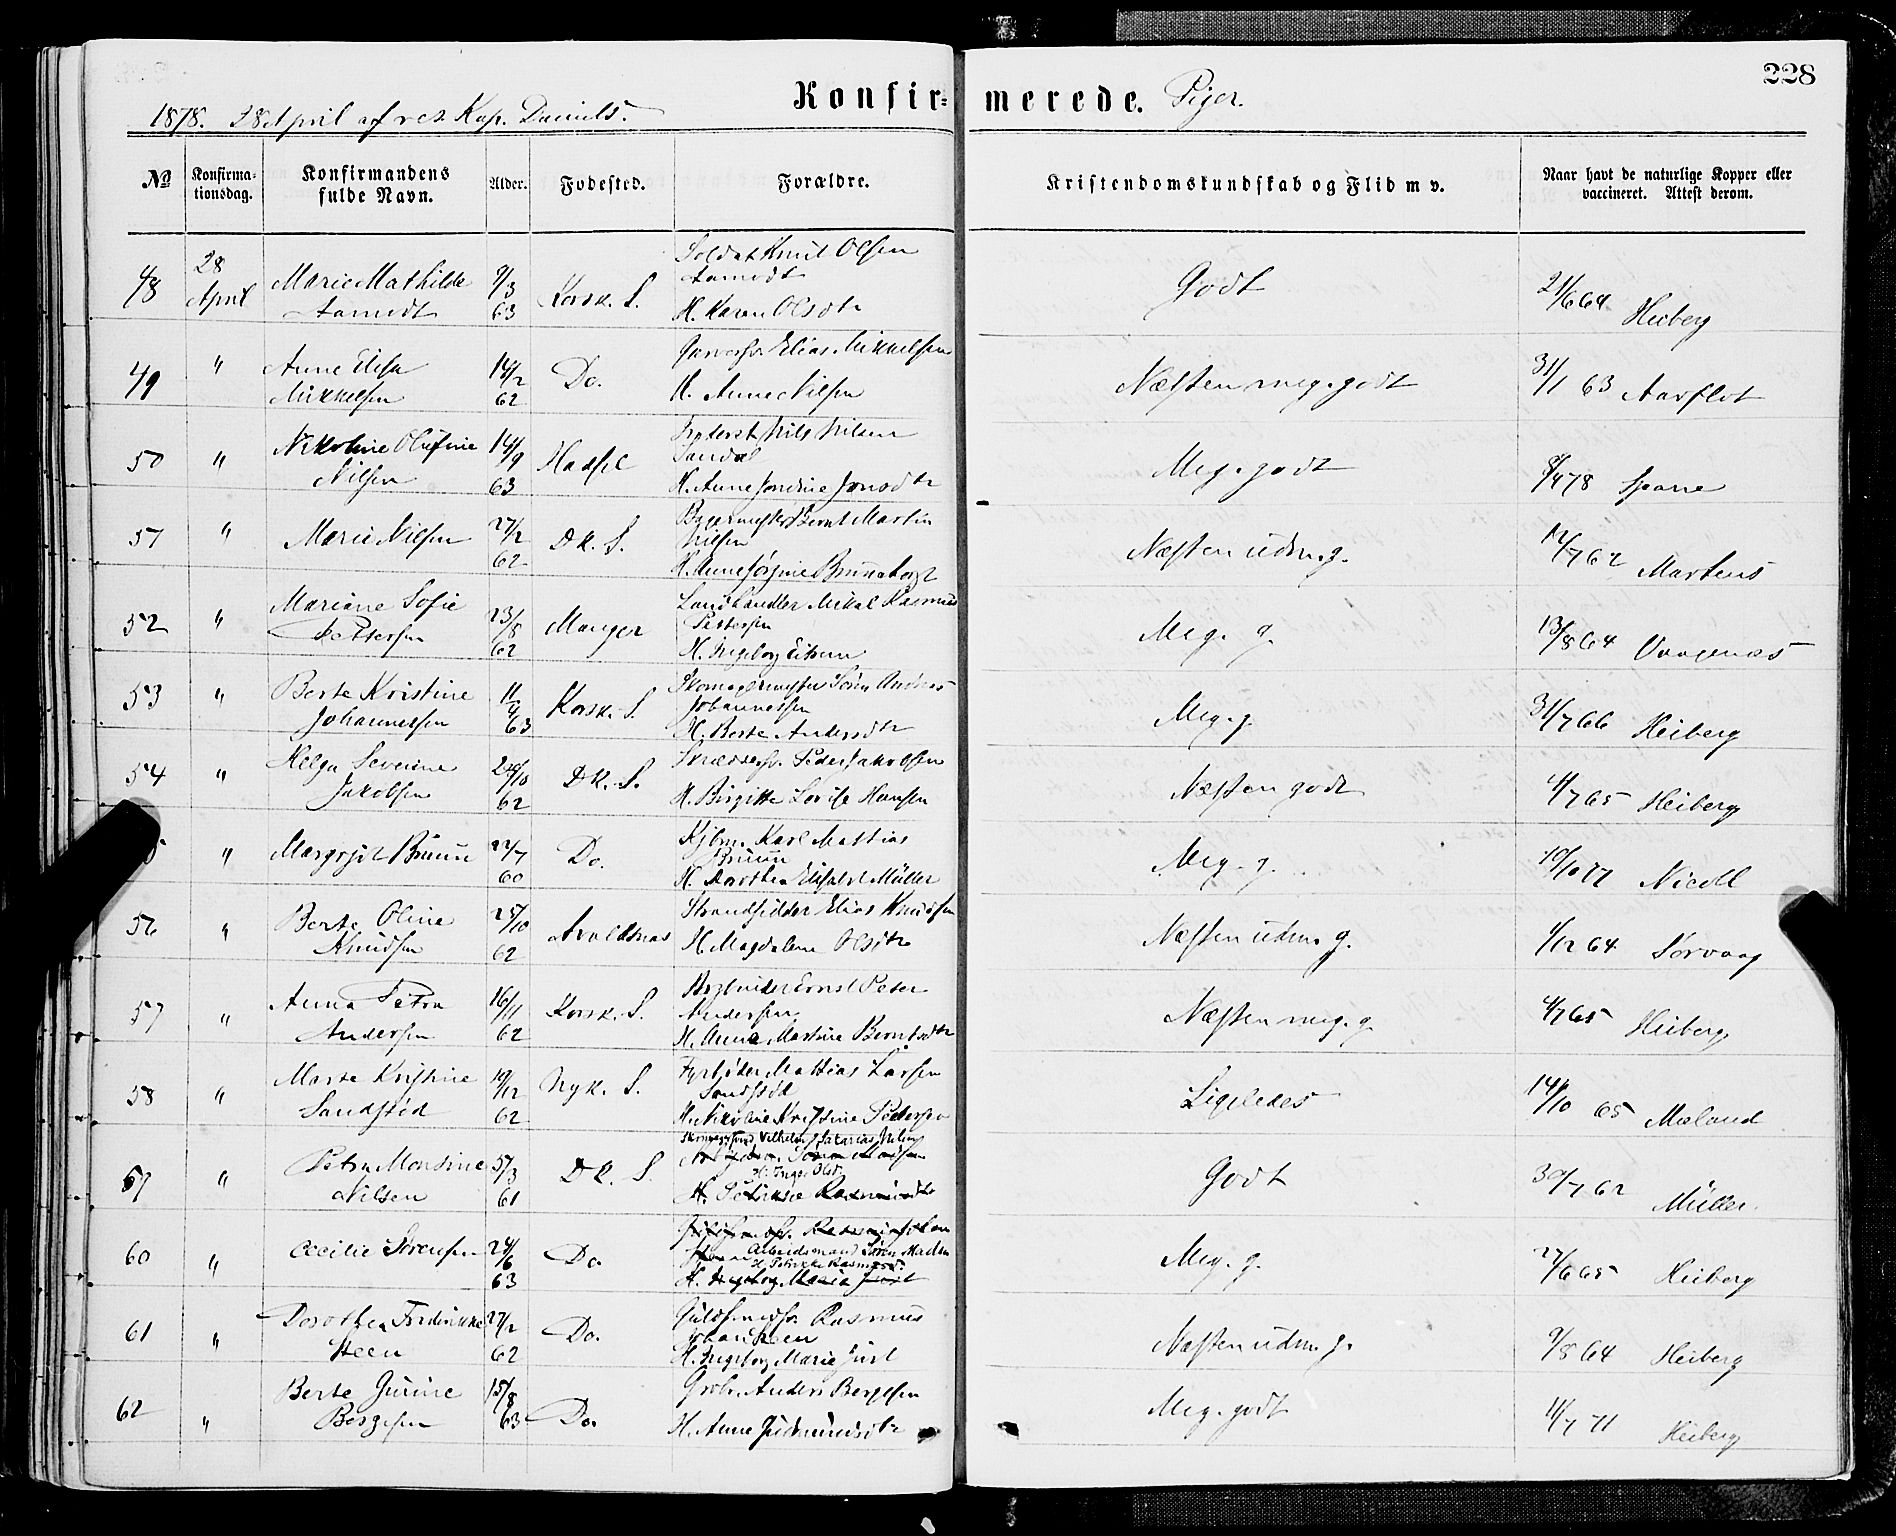 228
Konfirmerede. Piger.
1878. 28 April af res. Kap. Daniels.
№ Konfirmationsdag. Konfirmandens fulde Navn. Alder. Fødested. Forældre. Kristendomskundskab og Flid m v. Naar havt de naturlige Kopper eller vaccineret. Attest derom.
48 28 April Marie Mathilde Aamodt 9/3 63 Korsk. S. Soldat Knut Olsen Aamodt H. Karen Olsdtr Godt 21/6 64 Heiberg
49 " Anne Elisa Mikkelsen 14/2 62 Do. Elias Mikkelsen H. Anne Nilsen Næsten meg. godt 31/1 63 Aarflot
50 " Nikoline Olufine Nilsen 14/9 63 Nils Nilsen Sandal H. Anne Jonsdtr Meg. godt 8/4 78 Spone
51 " Marie Nilsen 27/2 62 DK. S. Bernt Martin Nilsen H. Anne Næsten udm. g. 12/7 62 Martens
52 " Mariane Sofie Pettersen 23/8 62 Manger Landhandler Mikal Rasmus Pettersen H. Ingeborg Meg. g. 13/8 64 Vaagenæs
53 " Berte Kristine Johannessen 11/9 63 Korsk. S. Skomagermester Sören Andreas Johannessen H. Berte Andersdtr Meg. g. 31/7 66 Heiberg
54 " Helga Severine Jakobsen 24/10 62 DK. S. Peder Jakobsen H. Birgitte Lovise Hansen Næsten godt 4/7 65 Heiberg
" Margrjet Bruun 22/7 60 Do. Kjbm. Karl Mathias Bruun H. Dorothea Elisabet Müller Meg. g. 10/10 77 Nicoll
56 " Berte Oline Knudsen 25/10 62 Avaldsnæs Strandsidder Elias Knudsen H. Magdalene Olsdtr Næsten udm. g. 1/12 64 Sørvaag
57 " Anna Petra Andersen 16/11 62 Korsk. S. Ernst Peter Andersen H. Anne Martine Berntsdtr Næsten meg. g. 4/7 65 Heiberg
58 " Marte Kristine Sandstød 10/12 62 Nyk. S. Fyrbøder Mathias Larsen Sandstød H. Nikoline Kristine Pedersen Ligeledes 14/10 65 Mæland
59 " Petra Monsine Nilsen 5/3 61 DK. S. Vilhelm Sakarias Nilsen H. Inger Olsdtr Godt 30/7 62 Müller
60 " Cecilie Sørensen 24/6 63 Do. Arbeidsmand Søren Madsen Meg. g. 27/6 65 Heiberg
61 " Dorothea Fredrikke Steen 27/2 62 Do. Guldsmedsv. Rasmus Johan Steen H. Ingeborg Marie Juel Næsten udm. g. 9/8 64 Heiberg
62 " Berte Jurine Bergesen 15/8 63 Do. Anders Bergesen H. Anne Gudmundsdtr Meg. godt 11/7 71 Heiberg